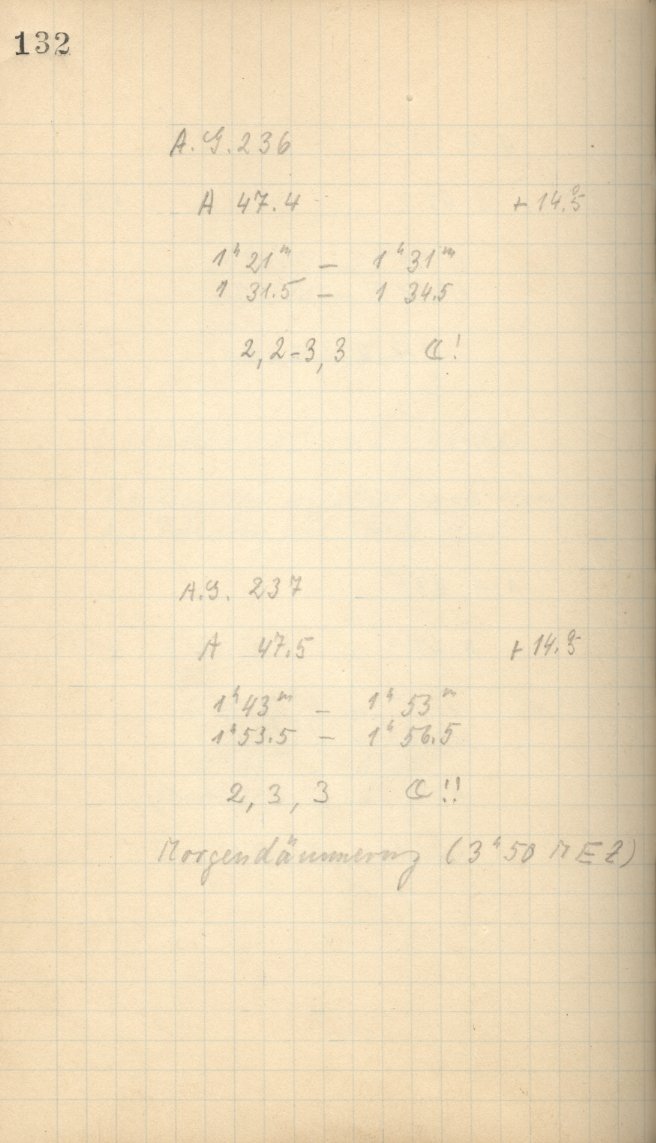 132
A.G. 236
A 47.4 + 14.°5
1ʰ 21ᵐ – 1ʰ 31ᵐ
1 31.5 – 1 34.5
2, 2-3, 3 ☾!
A.G. 237
A 47.5 + 14.°5
1ʰ 43ᵐ – 1ʰ 53ᵐ
1ʰ 53.5 – 1ʰ 56.5
2, 3, 3 ☾!!
Morgendämmerung (3ʰ 50 MEZ)